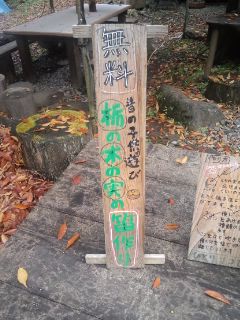 無料
昔の子供遊び
栃の木の実の笛作り